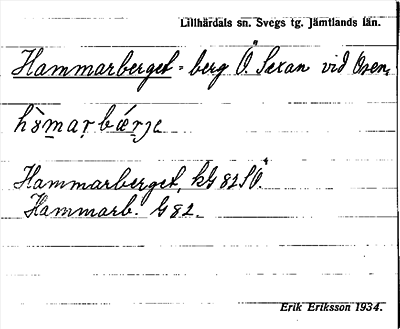 Lillhärdals sn. Svegs tg. Jämtlands län.
Hammarberget = berg Ö. Sexan vid Osen,
Hammarberget, kG 82 SÖ.
Hammarb. G 82.
Erik Eriksson 1934.